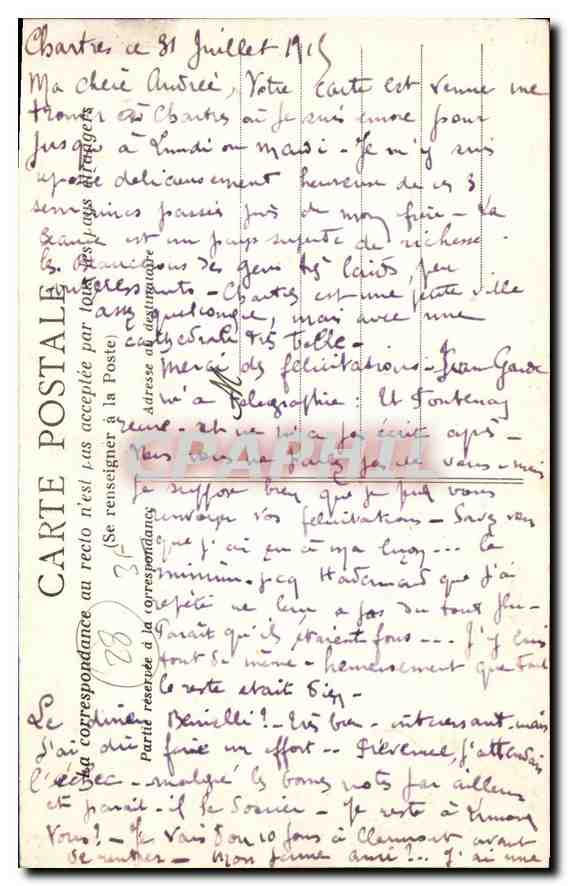 Chartres ce 31 Juillet 191
Ma chère Andrée, Votre carte est venue me
trouver à Chartres où je suis encore pour
jusqu'à Lundi ou mardi - Je m'y suis
reposée délicieusement heureuse de ces 3
semaines passées près de mon frère - La
Beauce est un pays superbe de richesse -
les Beaucerons des gens très laids, peu
intéressants - Chartres est une petite ville
assez quelconque, mais avec une
cathédrale très belle -
Merci des félicitations - Jean
m'a télégraphié : Ut Fontenay
- et ne m'a pas écrit après -
Mais vous ne parlez pas de vous - mais
je suppose bien que je puis vous
renvoyer vos félicitations - Savez vous
que j'ai eu à ma leçon ... le
minimum que j'ai
répété ne leur a pas du tout plu -
Paraît qu'ils étaient fous ... J'y suis
tout de même - heureusement que tout
le reste était bien
Le dîner Benielli ? - très bien - intéressant - mais
j'ai dû faire un effort - j'attendais
l'échec - malgré les bonnes notes par ailleurs
et paraît-il le Sorcier - Je reste à
Vous ? - Je vais 8 ou 10 jours à Clermont avant
de rentrer - mon ? .. J'ai une
CARTE POSTALE
La correspondance au recto n'est pas acceptée par tous les pays étrangers
(Se renseigner à la Poste)
Partie réservée à la correspondance
Adresse du destinataire
(28)
CPARPHIL